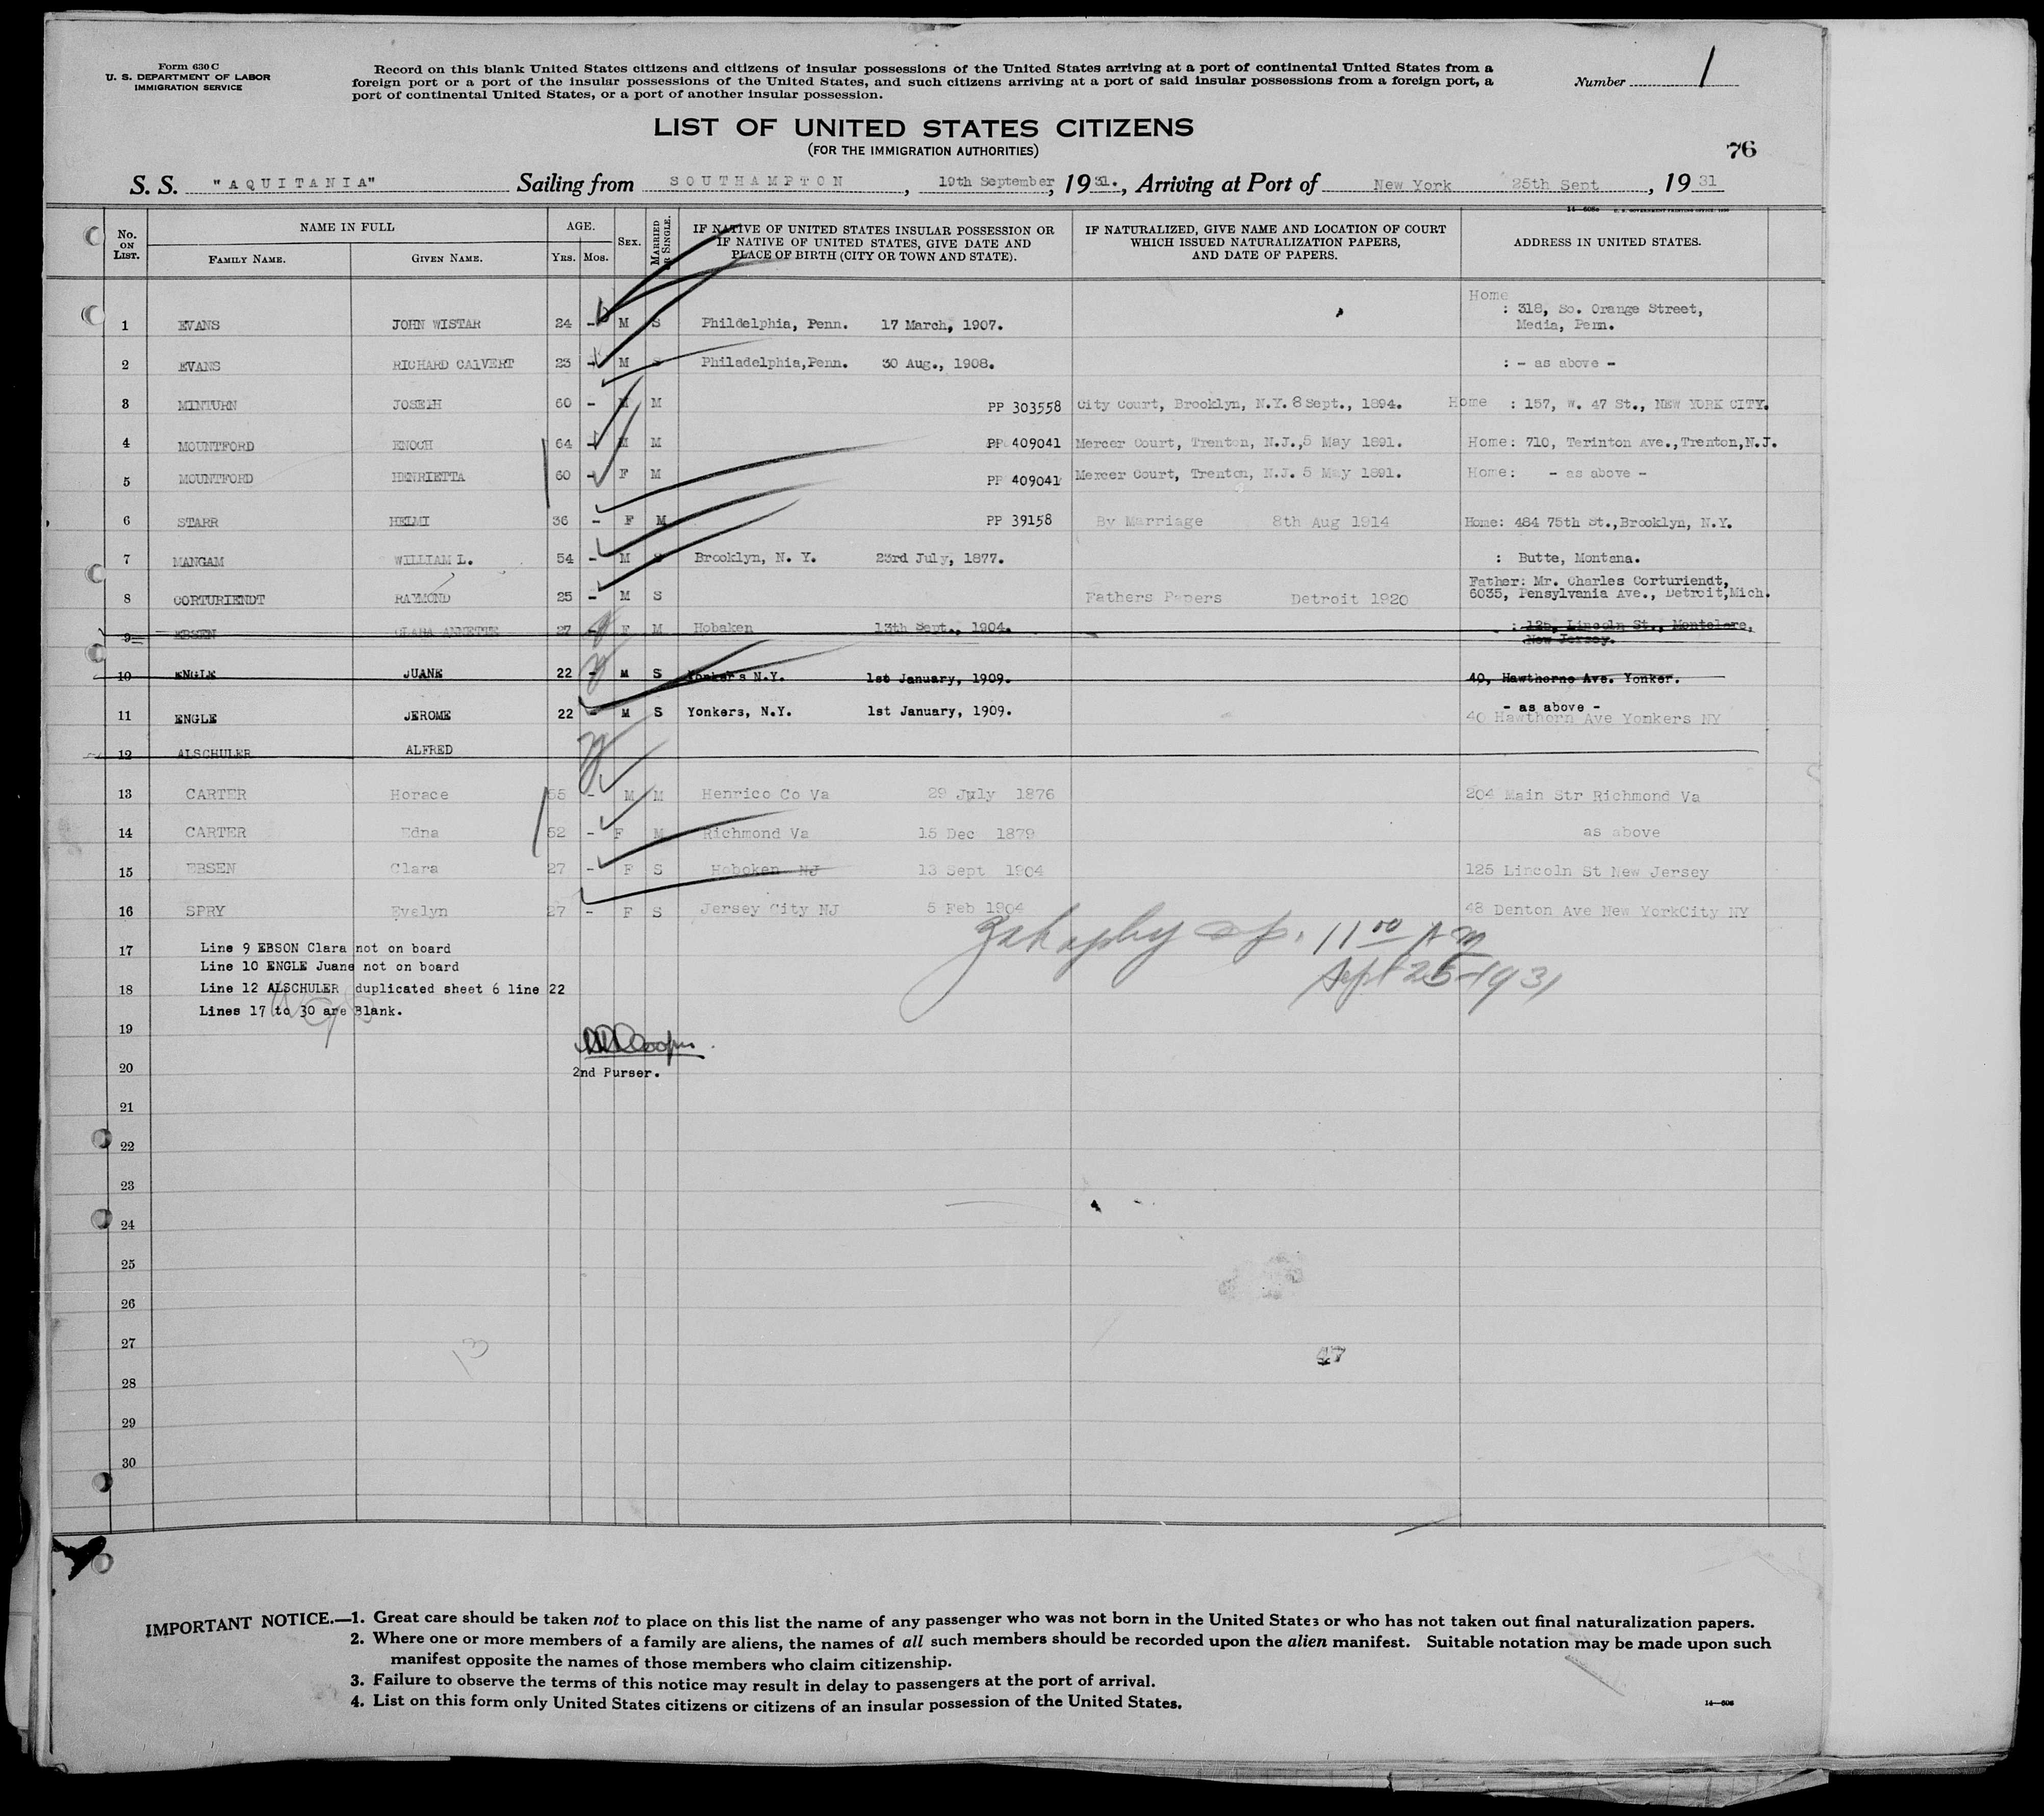 Form 630 C
U. S. DEPARTMENT OF LABOR
IMMIGRATION SERVICE
Record on this blank United States citizens and citizens of insular possessions of the United States arriving at a port of continental United States from a
foreign port or a port of the insular possessions of the United States, and such citizens arriving at a port of said insular possessions from a foreign port, a
port of continental United States, or a port of another insular possession.
Number 1
LIST OF UNITED STATES CITIZENS
(FOR THE IMMIGRATION AUTHORITIES)
76
S. S. "AQUITANIA" Sailing from SOUTHAMPTON, 19th September, 1931., Arriving at Port of New York 25th Sept, 1931
No. ON LIST. NAME IN FULL FAMILY NAME. GIVEN NAME. AGE. YRS. MOS. SEX. MARRIED OR SINGLE. IF NATIVE OF UNITED STATES INSULAR POSSESSION OR IF NATIVE OF UNITED STATES, GIVE DATE AND PLACE OF BIRTH (CITY OR TOWN AND STATE). IF NATURALIZED, GIVE NAME AND LOCATION OF COURT WHICH ISSUED NATURALIZATION PAPERS, AND DATE OF PAPERS. ADDRESS IN UNITED STATES.
1 EVANS JOHN WISTAR 24 - M S Phildelphia, Penn. 17 March, 1907. Home : 318, So. Orange Street, Media, Penn.
2 EVANS RICHARD CALVERT 23 - M S Philadelphia,Penn. 30 Aug., 1908. : - as above -
3 MINTURN JOSEPH 60 - M M PP 303558 City Court, Brooklyn, N.Y. 8 Sept., 1894. Home : 157, W. 47 St., NEW YORK CITY.
4 MOUNTFORD ENOCH 64 - M M PP 409041 Mercer Court, Trenton, N.J.,5 May 1891. Home: 710, Terinton Ave.,Trenton,N.J.
5 MOUNTFORD HENRIETTA 60 - F M PP 409041 Mercer Court, Trenton, N.J. 5 May 1891. Home: - as above -
6 STARR HELMI 36 - F M PP 39158 By Marriage 8th Aug 1914 Home: 484 75th St.,Brooklyn, N.Y.
7 MANGAM WILLIAM L. 54 - M S Brooklyn, N. Y. 23rd July, 1877. : Butte, Montana.
8 CORTURIENDT RAYMOND 25 - M S Fathers Papers Detroit 1920 Father: Mr. Charles Corturiendt, 6035, Pensylvania Ave., Detroit,Mich.
9 EBSEN CLARA ANNETTE 27 - F M Hobaken 13th Sept., 1904. : 125, Lincoln St., Montclare, New Jersey.
10 ENGLE JUANE 22 - M S Yonkers N.Y. 1st January, 1909. 40, Hawthorne Ave. Yonker.
11 ENGLE JEROME 22 - M S Yonkers, N.Y. 1st January, 1909. - as above - 40 Hawthorn Ave Yonkers NY
12 ALSCHULER ALFRED
13 CARTER Horace 55 - M M Henrico Co Va 29 July 1876 204 Main Str Richmond Va
14 CARTER Edna 52 - F M Richmond Va 15 Dec 1879 as above
15 EBSEN Clara 27 - F S Hoboken NJ 13 Sept 1904 125 Lincoln St New Jersey
16 SPRY Evelyn 27 - F S Jersey City NJ 5 Feb 1904 48 Denton Ave New YorkCity NY
11 00 AM
Sept 25-1931
17 Line 9 EBSON Clara not on board
Line 10 ENGLE Juane not on board
18 Line 12 ALSCHULER duplicated sheet 6 line 22
Lines 17 to 30 are Blank.
19
20 2nd Purser.
21
22
23
24
25
26
27 13 47
28
29
30
IMPORTANT NOTICE.—1. Great care should be taken not to place on this list the name of any passenger who was not born in the United States or who has not taken out final naturalization papers.
2. Where one or more members of a family are aliens, the names of all such members should be recorded upon the alien manifest. Suitable notation may be made upon such
manifest opposite the names of those members who claim citizenship.
3. Failure to observe the terms of this notice may result in delay to passengers at the port of arrival.
4. List on this form only United States citizens or citizens of an insular possession of the United States.
14—606